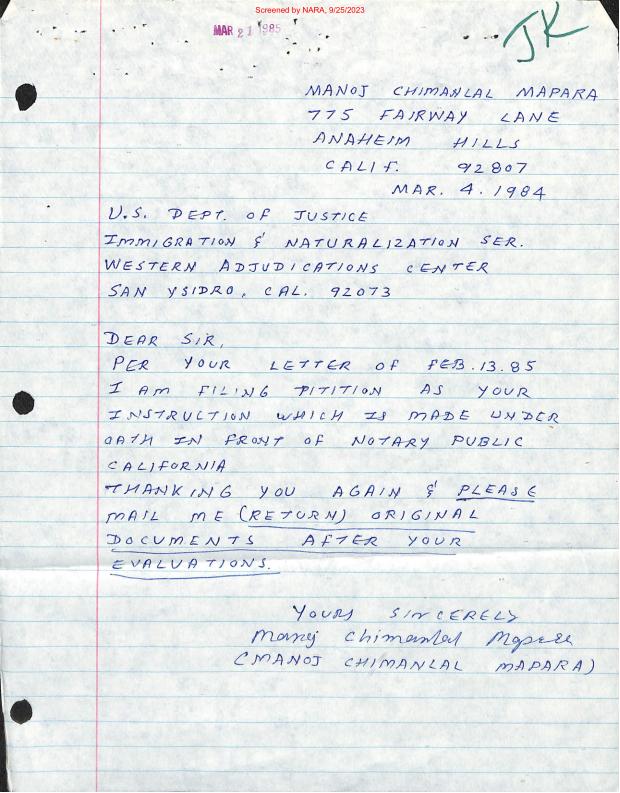 Screened by NARA, 9/25/2023
MAR 21 1985
JK
MANOJ CHIMANLAL MAPARA
775 FAIRWAY LANE
ANAHEIM HILLS
CALIF. 92807
MAR. 4. 1984
U.S. DEPT. OF JUSTICE
IMMIGRATION & NATURALIZATION SER.
WESTERN ADJUDICATIONS CENTER
SAN YSIDRO, CAL. 92073
DEAR SIR,
PER YOUR LETTER OF FEB.13.85
I AM FILING PITITION AS YOUR
INSTRUCTION WHICH IS MADE UNDER
OATH IN FRONT OF NOTARY PUBLIC
CALIFORNIA
THANKING YOU AGAIN & PLEASE
MAIL ME (RETURN) ORIGINAL
DOCUMENTS AFTER YOUR
EVALUATIONS.
YOURS SINCERELY
Manoj Chimanlal Mapara
(MANOJ CHIMANLAL MAPARA)